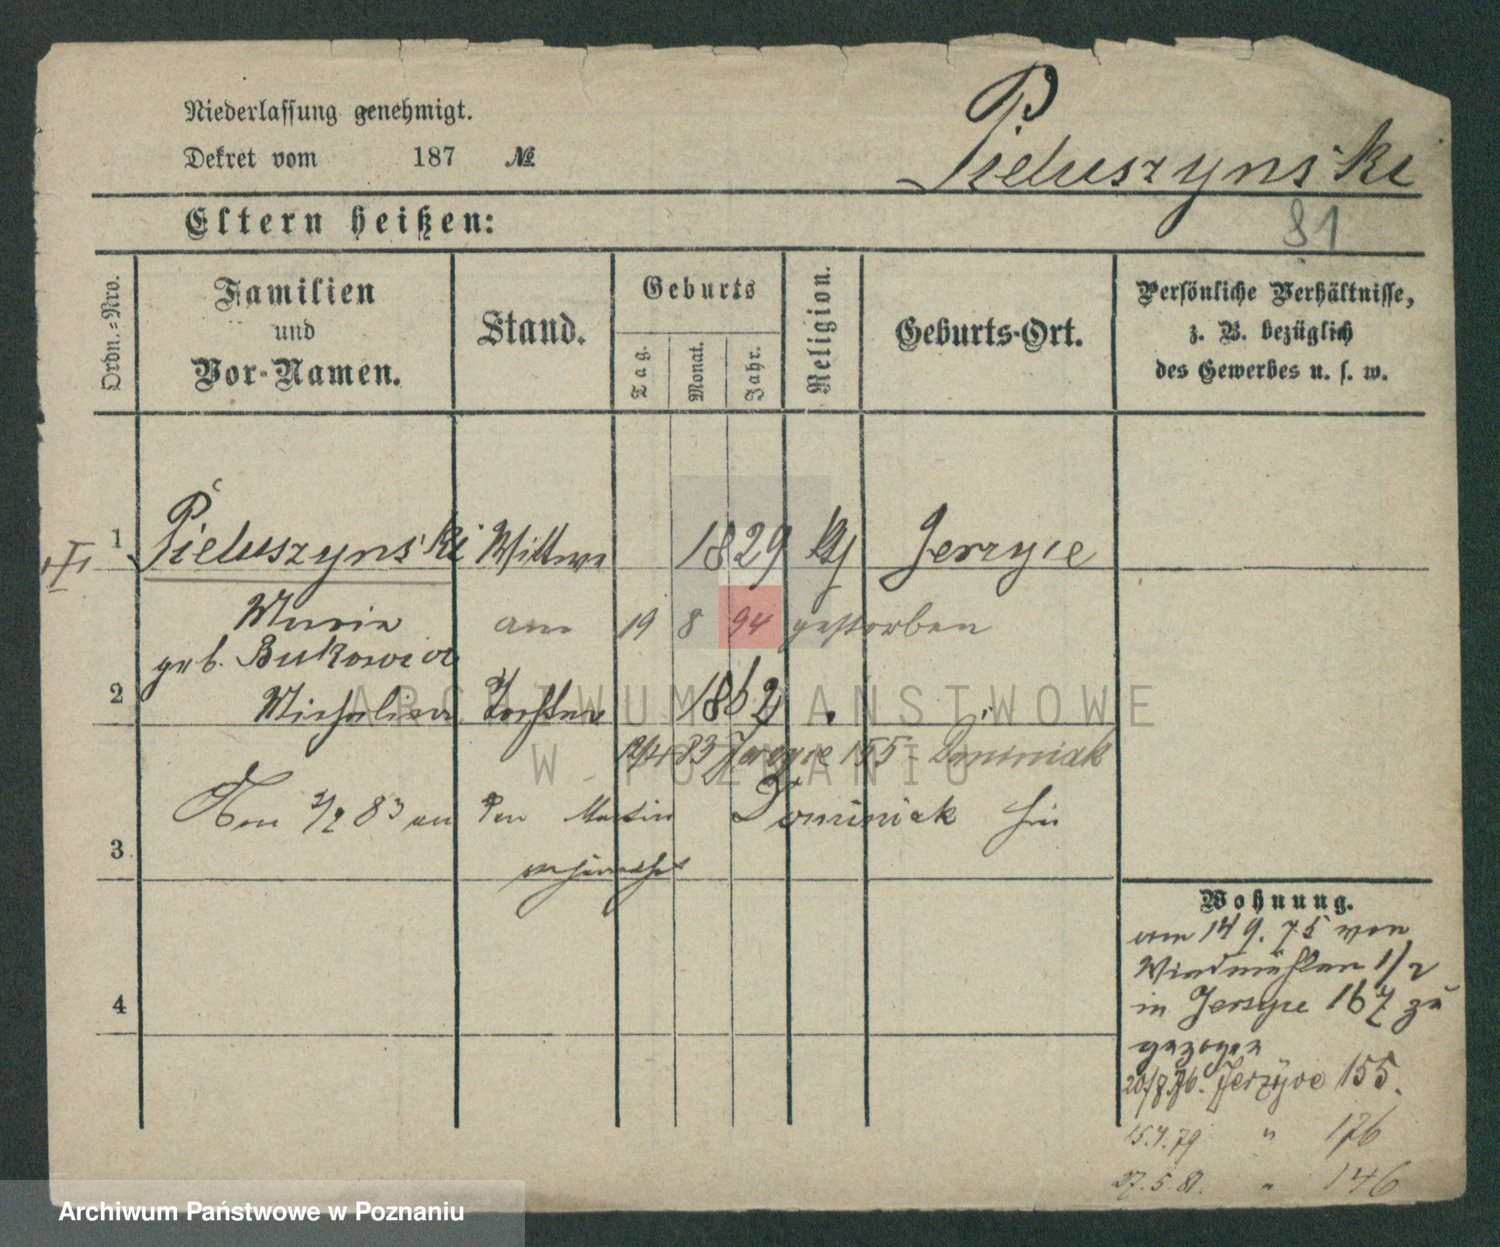 Niederlassung genehmigt.
Dekret vom 187 №
Pieluszyński
81
Eltern heißen:
Ordn.=Nro.
Familien und Vor-Namen.
Stand.
Geburts
Tag.
Monat.
Jahr.
Religion.
Geburts-Ort.
Persönliche Verhältnisse,
z. B. bezüglich
des Gewerbes u. s. w.
1 Pieluszyński Wittwe 1829 Jerzyce
Maria am 19 8 94 gestorben
geb. Bukowicz
2 Michalina Tochter 1862
83 Jerzyce 155 - Dominiak
83 an den Martin Dominiak hier
3 verheirathet
4
Wohnung.
am 14 9. 75 von
Windmühlen 1/2
in Jerzyce 167 zu
gezogen
76. Jerzyce 155.
79 " 176
27. 5. 81. " 146
ARCHIWUM PAŃSTWOWE
W POZNANIU
Archiwum Państwowe w Poznaniu